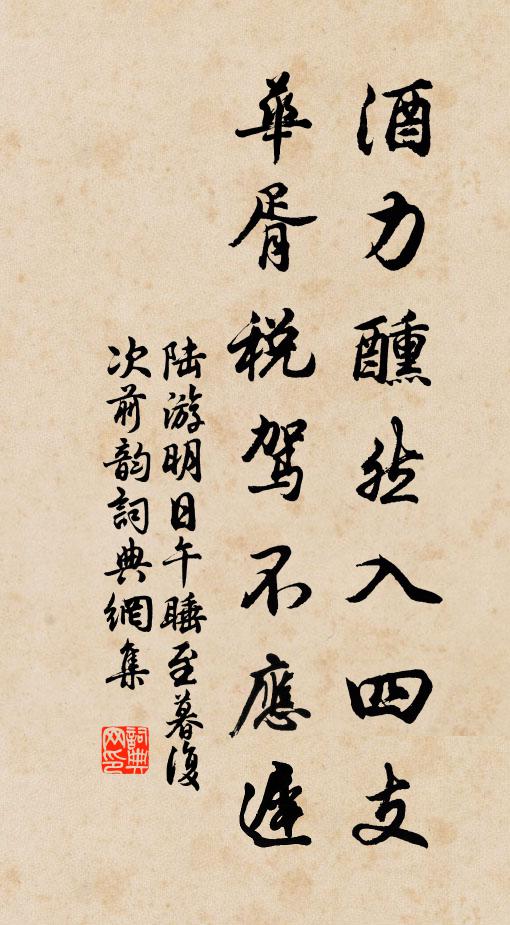 酒力醺然入四支
華胥税駕不應遲
陆游明日午睡至暮復
次前韵詞典網集
詞典
网印